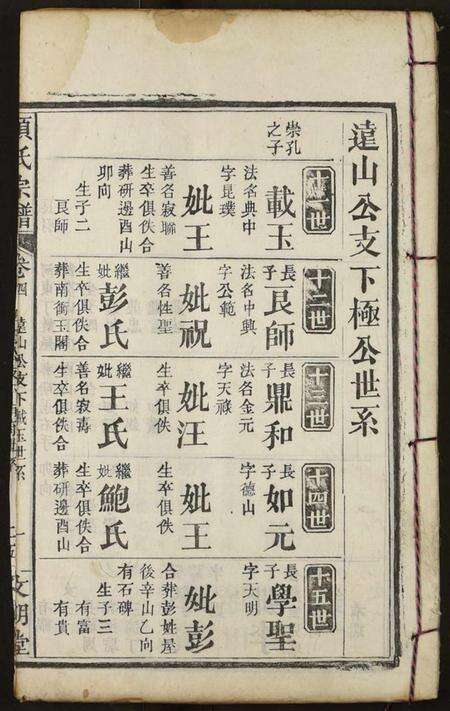 遠山公支下極公世系
十一世
崇孔
之子
載玉
法名典中
字昆璞
妣王
善名寂聯
生卒俱佚合
葬研邊酉山
卯向
生子二
艮師
十二世
長子
艮師
法名中興
字公範
妣祝
善名性聖
繼妣
彭氏
生卒俱佚合
葬南衝玉閣
十三世
長子
鼎和
法名金元
字天祿
妣汪
生卒俱佚
繼妣
王氏
善名寂壽
生卒俱佚合
十四世
長子
如元
字德山
妣王
生卒俱佚
繼妣
鮑氏
生卒俱佚合
葬研邊酉山
十五世
長子
學聖
字天明
妣彭
合葬彭姓屋
後辛山乙向
有石碑
生子三
有富
有貴
項氏宗譜
卷四
遠山公支下載玉世系
文明堂